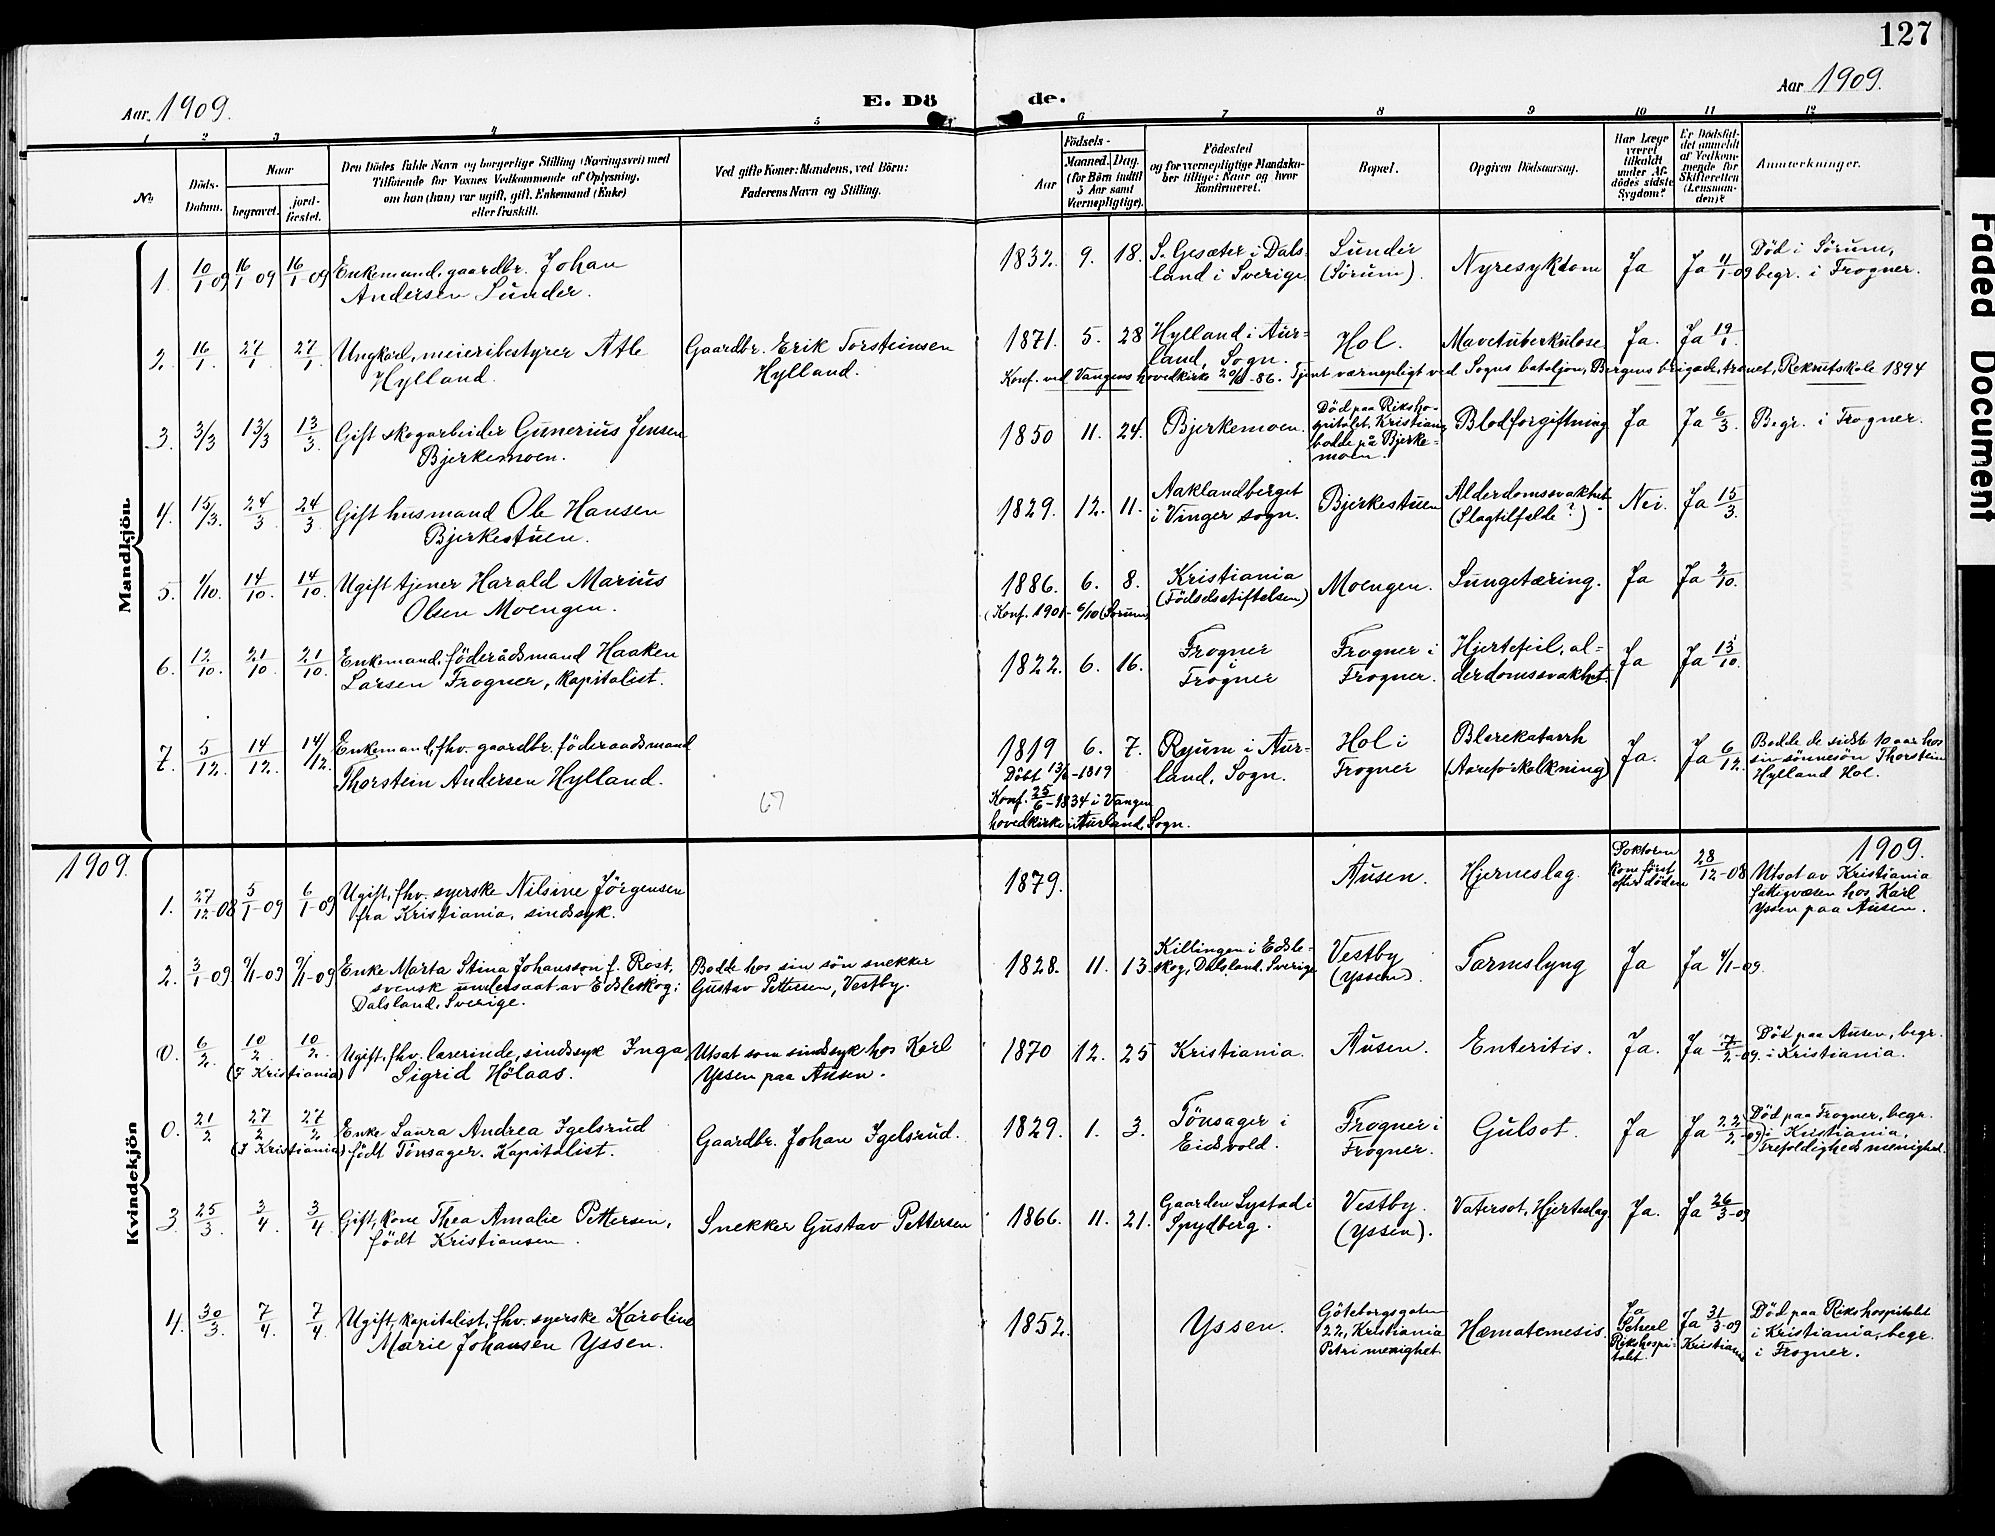 127
Aar 1909.
E. Dö de.
Aar 1909.
1 2 3 4 5 6 7 8 9 10 11 12
No
Döds-Datum.
Naar
begravet.
jordfæstet.
Den Dödes fulde Navn og borgerlige Stilling (Næringsvei) med
Tilföiende for Voxnes Vedkommende af Oplysning,
om han (hun) var ugift, gift, Enkemand (Enke)
eller fraskilt.
Ved gifte Koner: Mandens, ved Börn:
Faderens Navn og Stilling.
Födsels-
Aar
Maaned. Dag.
(for Börn indtil
5 Aar samt
Værnepligtige).
Födested
og for værnepligtige Mandskaber tillige: Naar og hvor
konfirmeret.
Bopæl.
Opgiven Dödsaarsag.
Har Læge
været
tilkaldt
under Afdödes sidste
Sygdom?
Er Dödsfaldet anmeldt
af Vedkommende for
Skifteretten
(Lensmanden)?
Anmærkninger.
Mandkjön.
1. 10/1 09 16/1 09 16/1 09 Enkemand, gaardbr. Johan
Andersen Sunder.
1832. 9. 18. S. Gesæter i Dalsland i Sverige
Sunder
(Sörum).
Nyresykdom
Ja
Ja 11/1-09
Död i Sörum,
begr. i Frogner.
2. 16/1. 27/1 27/1. Ungkarl, meieribestyrer Atle
Hylland.
Gaardbr. Erik Torsteinsen
Hylland.
1871. 5. 28 Hylland i Aurland, Sogn.
Hol.
Mavetuberkulose
Ja.
Ja 19/1.
Konf. ved Vangens hovedkirke -86. Tjent værnepligt ved Sogns bataljon, Bergens brigade, trænet, Rekrutskole 1894
3. 3/3 13/3 13/3. Gift skogarbeider Gunerius Jensen
Bjerkemoen.
1850 11. 24. Bjerkemoen.
Död paa Rikshospitalet, Kristiania
bodde på Bjerkemoen.
Blodforgiftning
Ja
Ja 6/3.
Begr. i Frogner.
4. 15/3. 24/3 24/3 Gift husmand Ole Hansen
Bjerkestuen.
1829. 12. 11. Aaklandberget
i Vinger sogn.
Bjerkestuen
Alderdomssvakhet
(Slagtilfælde?).
Nei.
Ja 15/3.
5. 1/10. 14/10 14/10 Ugift tjener Harald Marius
Olsen Moengen.
1886. 6. 8. Kristiania
(Födselsstiftelsen)
(Konf. 1901 - 6/10 (Sörum)
Moengen.
Lungetæring.
Ja
Ja 2/10.
6. 12/10. 21/10 21/10. Enkemand, föderådsmand Haaken
Larsen Frogner, kapitalist.
1822. 6. 16. Frogner
i Frogner
Frogner i
Frogner.
Hjertefeil, alderdomssvakhet.
Ja
Ja 13/10.
7. 5/12. 14/12. 14/12. Enkemand, fhv. gaardbr. föderaadsmand
Thorstein Andersen Hylland.
67
1819 6. 7. Ryum i Aurland, Sogn.
Döbt 13/6-1819
Konf. 25/6-1834 i Vangen
hovedkirke i Aurland, Sogn.
Hol i
Frogner
Blærekatarrh
(Aareforkalkning)
Ja.
Ja 6/12.
Bodde de sidste 10 aar hos
sin sönnesön Thorstein
Hylland Hol.
1909.
1909.
Kvindekjön
1. 27/12-08 5/1-09 6/1-09 Ugift, fhv. syerske Nilsine Jörgensen
fra Kristiania, sindssyk.
1879.
Ausen.
Hjerneslag.
Doktoren
kom först
efter döden
28/12-08
Utsat av Kristiania
fattigvæsen hos Karl
Yssen paa Ausen.
2. 3/1-09 9/1-09 9/1-09 Enke Marta Stina Johansson f. Rost,
svensk undersaat av Edsleskog i
Dalsland, Sverige.
Bodde hos sin sön snekker
Gustav Pettersen, Vestby.
1828. 11. 13. Killingen i Edsleskog, Dalsland, Sverige
Vestby
(Yssen)
Tarmslyng
Ja
Ja 4/1-09.
0. 6/2. 10/2 10/2. Ugift, fhv. lærerinde, sindssyk Inga
(I Kristiania) Sigrid Hölaas.
Utsat som sindssyk hos Karl
Yssen paa Ausen.
1870 12. 25 Kristiania.
Ausen.
Enteritis.
Ja.
Ja 7/2-09.
Död paa Ausen, begr.
i Kristiania.
0. 21/2 27/2 27/2 Enke Laura Andrea Igelsrud
(I Kristiania) född Tönsager. Kapitalist.
Gaardbr. Johan Igelsrud.
1829. 1. 3. Tönsager i
Eidsvold.
Frogner i
Frogner.
Gulsot.
Ja
Ja 22/2-09
Död paa Frogner, begr.
i Kristiania,
Trefoldigheds menighed.
3. 25/3. 3/4 3/4 Gift, kone Thea Amalie Pettersen,
födt Kristiansen.
Snekker Gustav Pettersen
1866. 11. 21. Gaarden Lystad i
Spydberg.
Vestby.
(Yssen).
Vatersot, Hjerteslag
Ja.
Ja 26/3-09
4. 30/3. 7/4. 7/4 Ugift, kapitalist, fhv. syerske Karoline
Marie Johansen Yssen.
1852.
Yssen.
Göteborgsgaten
22, Kristiania
Petri menighet.
Hæmatemesis.
Ja
Scheel
Rikshospitalet.
Ja 31/3-09
Kristiania
Död paa Rikshospitalet
i Kristiania, begr.
i Frogner.
Faded Document